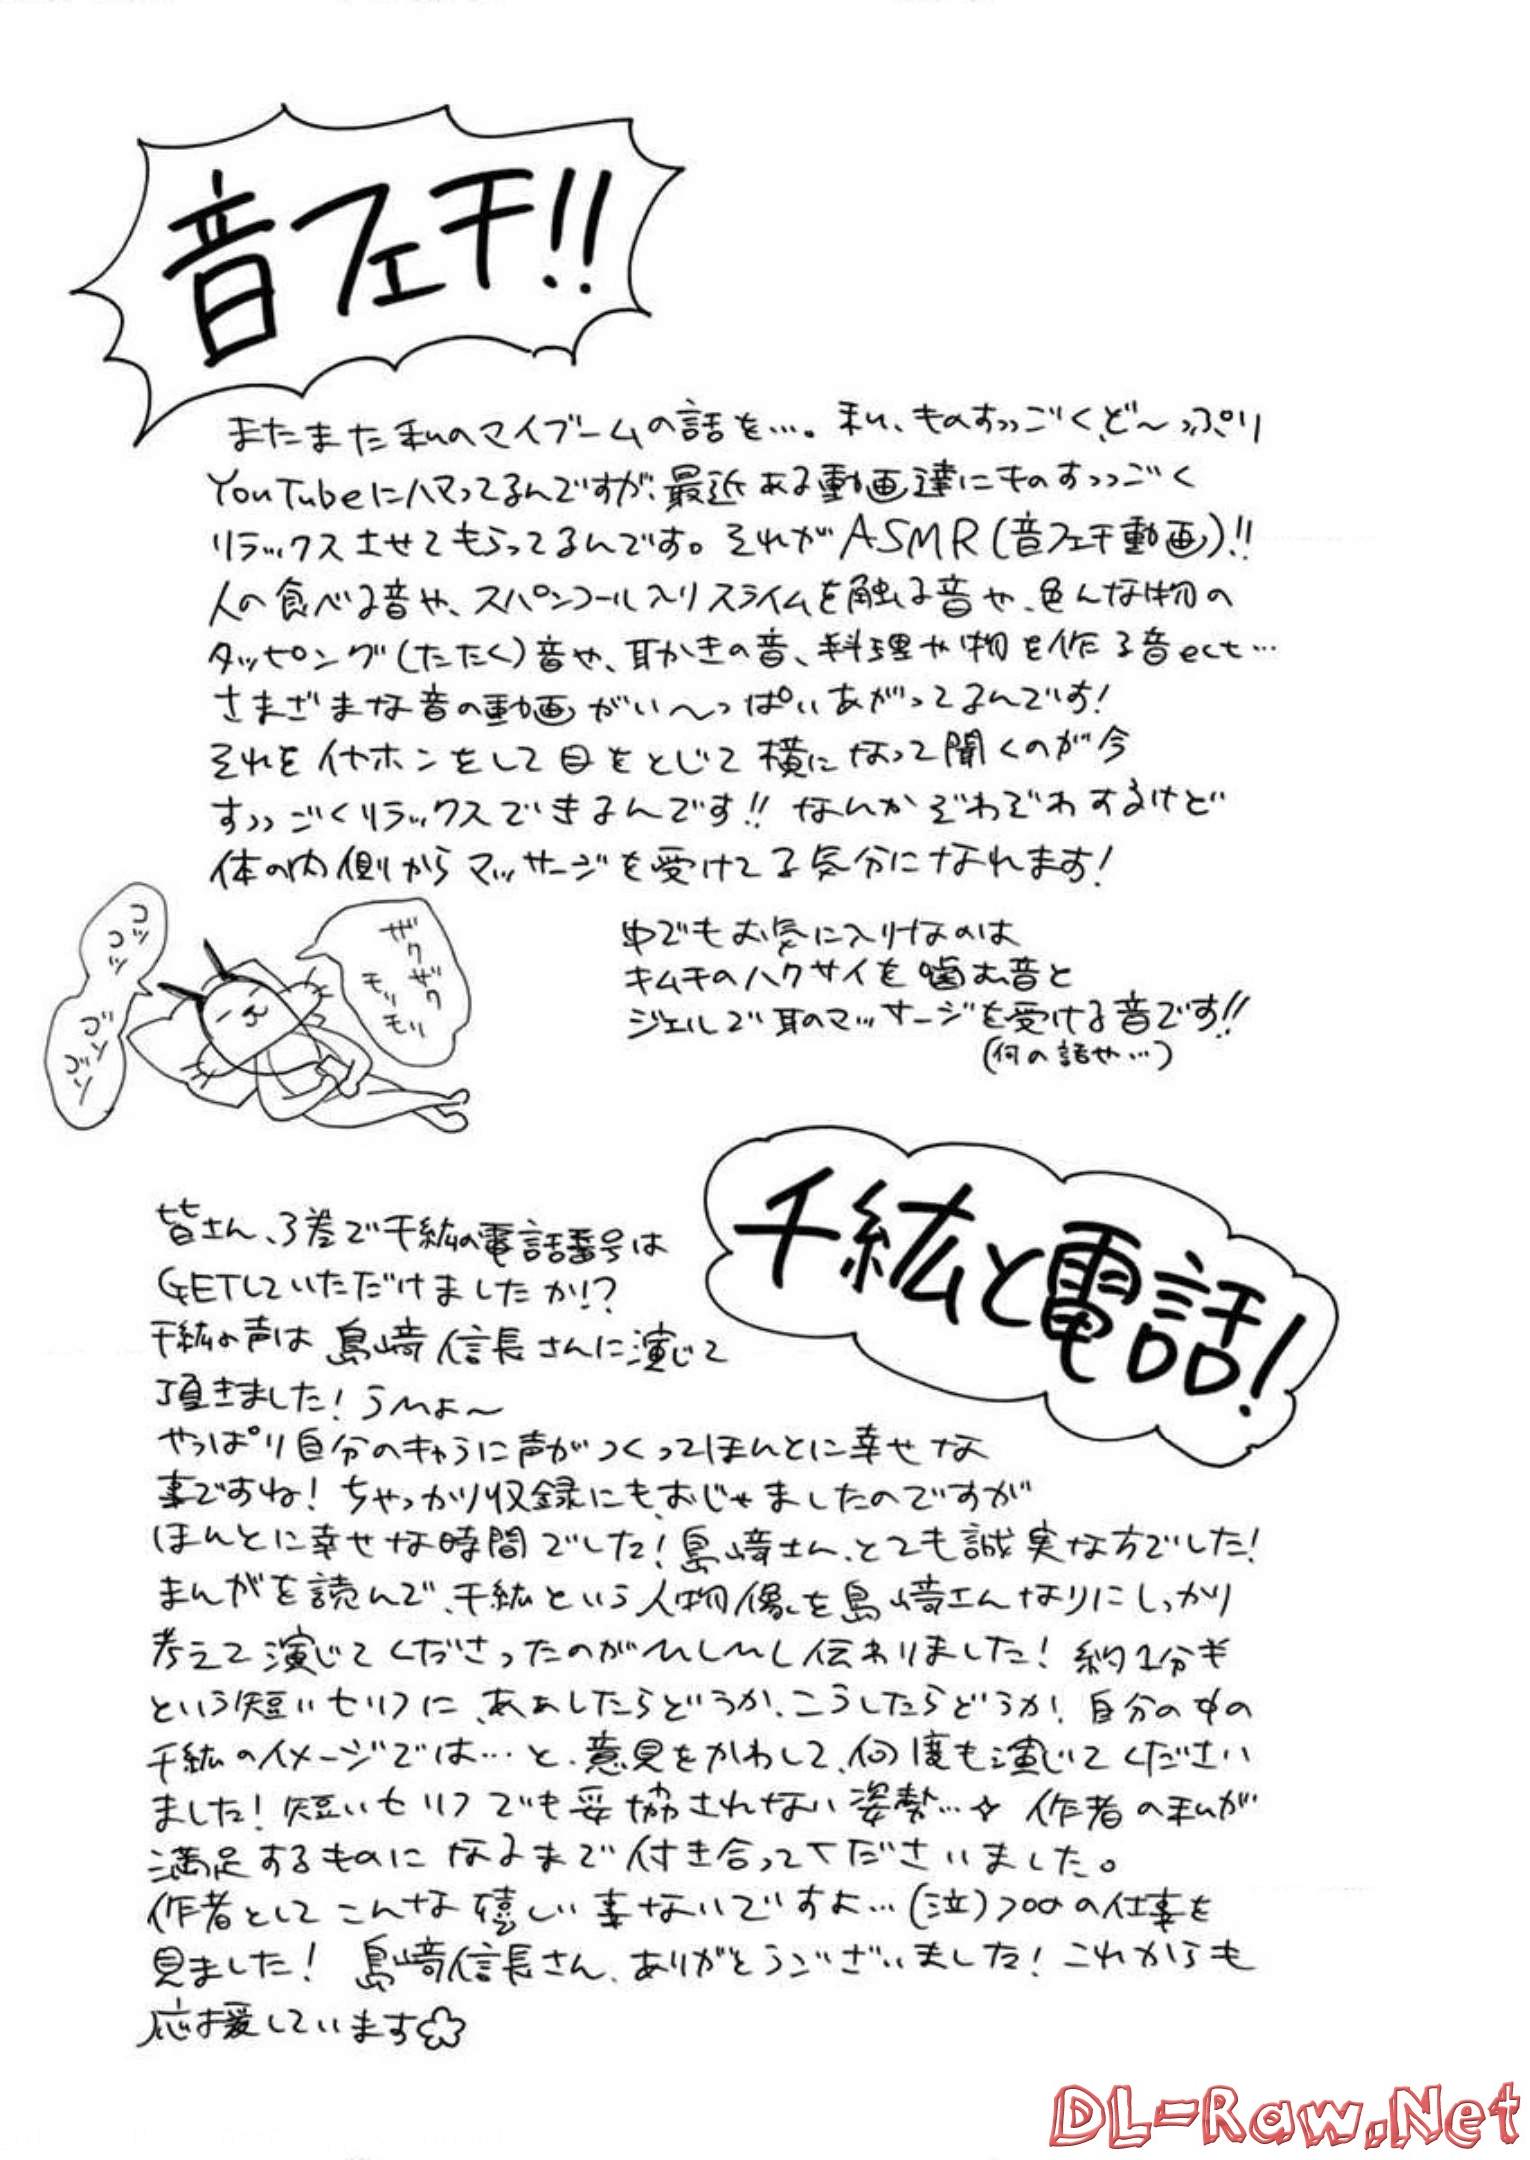 音フェチ!!
またまた私のマイブームの話を…。私、ものすっっごく、ど〜っぷり
YouTubeにハマってるんですが、最近ある動画達にものすっっごく
リラックスさせてもらってるんです。それがASMR(音フェチ動画)!!
人の食べる音や、スパンコール入りスライムを触る音や、色んな物の
タッピング(たたく)音や、耳かきの音、料理や物を作る音ect…
さまざまな音の動画がい〜っぱいあがってるんです!
それをイヤホンをして目をとじて横になって聞くのが今
すっっごくリラックスできるんです!! なんかぞわぞわするけど
体の内側からマッサージを受けてる気分になれます!
コツ
コツ
ゴソ
ゴソ
ザク
ザク
モリ
モリ
中でもお気に入りなのは
キムチのハクサイを噛む音と
ジェルで耳のマッサージを受ける音です!!
(何の話や…)
千紘と電話!
皆さん、3巻で千紘の電話番号は
GETしていただけましたか!?
千紘の声は島﨑信長さんに演じて
頂きました! うひょ〜
やっぱり自分のキャラに声がつくってほんとに幸せな
事ですね! ちゃっかり収録にもおじゃましたのですが
ほんとに幸せな時間でした! 島﨑さん、とても誠実な方でした!
まんがを読んで、千紘という人物像を島﨑さんなりにしっかり
考えて演じてくださったのがひしひし伝わりました! 約1分半
という短いセリフに、ああしたらどうか、こうしたらどうか! 自分の中の
千紘のイメージでは…と、意見をかわして、何度も演じてください
ました! 短いセリフでも妥協されない姿勢…☆ 作者の私が
満足するものになるまで付き合ってくださいました。
作者としてこんな嬉しい事ないですよ…(泣)プロの仕事を
見ました! 島﨑信長さん、ありがとうございました! これからも
応援しています
DL-Raw.Net